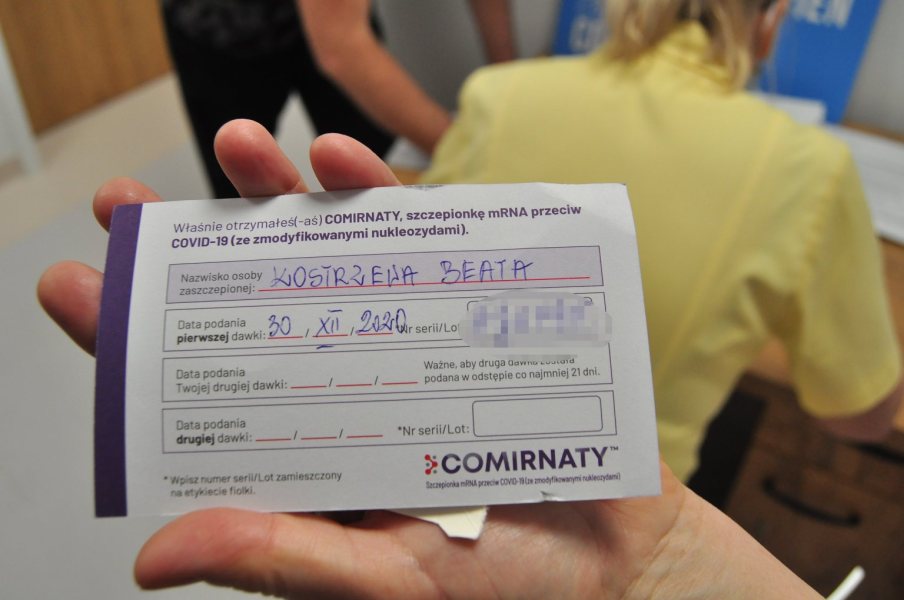 IEŃ
Właśnie otrzymałeś(-aś) COMIRNATY, szczepionkę mRNA przeciw
COVID-19 (ze zmodyfikowanymi nukleozydami).
Nazwisko osoby
zaszczepionej: KOSTRZEWA BEATA
Data podania
pierwszej dawki: 30 / XII / 2020 Nr serii/Lot
Data podania
Twojej drugiej dawki: __ / __ / __
Ważne, aby druga dawka została
podana w odstępie co najmniej 21 dni.
Data podania
drugiej dawki: __ / __ / __ *Nr serii/Lot:
* Wpisz numer serii/Lot zamieszczony
na etykiecie fiolki.
COMIRNATY™
Szczepionka mRNA przeciw COVID-19 (ze zmodyfikowanymi nukleozydami)